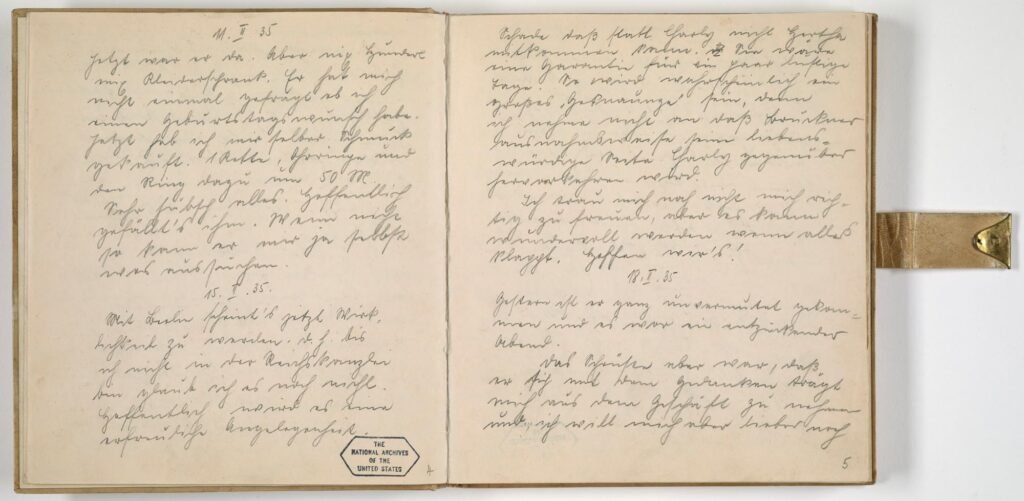 11. II 35
Jetzt war er da. Aber nix Hunderl
nix Kleiderschrank. Er hat mich
nicht einmal gefragt ob ich
einen Geburtstagswunsch habe.
Jetzt hab ich mir selber Schmuck
gekauft. 1 Kette, Ohrringe und
den Ring dazu um 50 M.
Sehr hübsch alles. Hoffentlich
gefällt's ihm. Wenn nicht
so kann er mir ja selbst
was aussuchen.
15. II. 35.
Mit Berlin scheint's jetzt Wirk-
lichkeit zu werden. d.h. bis
ich nicht in der Reichskanzlei
bin glaub ich es noch nicht.
Hoffentlich wird es eine
erfreuliche Angelegenheit.
THE
NATIONAL ARCHIVES
OF THE
UNITED STATES
4
Schade daß statt Charly nicht Hertha
mitkommen kann. Sie wäre
eine Garantie für ein paar lustige
Tage. So wird wahrscheinlich ein
großes „Geknaunze" sein, denn
ich nehme nicht an daß Brückner
ausnahmsweise seine liebens-
würdige Seite Charly gegenüber
hervorkehren wird.
Ich trau mich noch nicht mich rich-
tig zu freuen, aber es kann
wundervoll werden wenn alles
klappt. Hoffen wir's!
18. II. 35
Gestern ist er ganz unvermutet gekom-
men und es war ein entzückender
Abend.
Das Schönste aber war, daß
er sich mit dem Gedanken trägt
mich aus dem Geschäft zu nehmen
und, ich will mich aber lieber noch
5